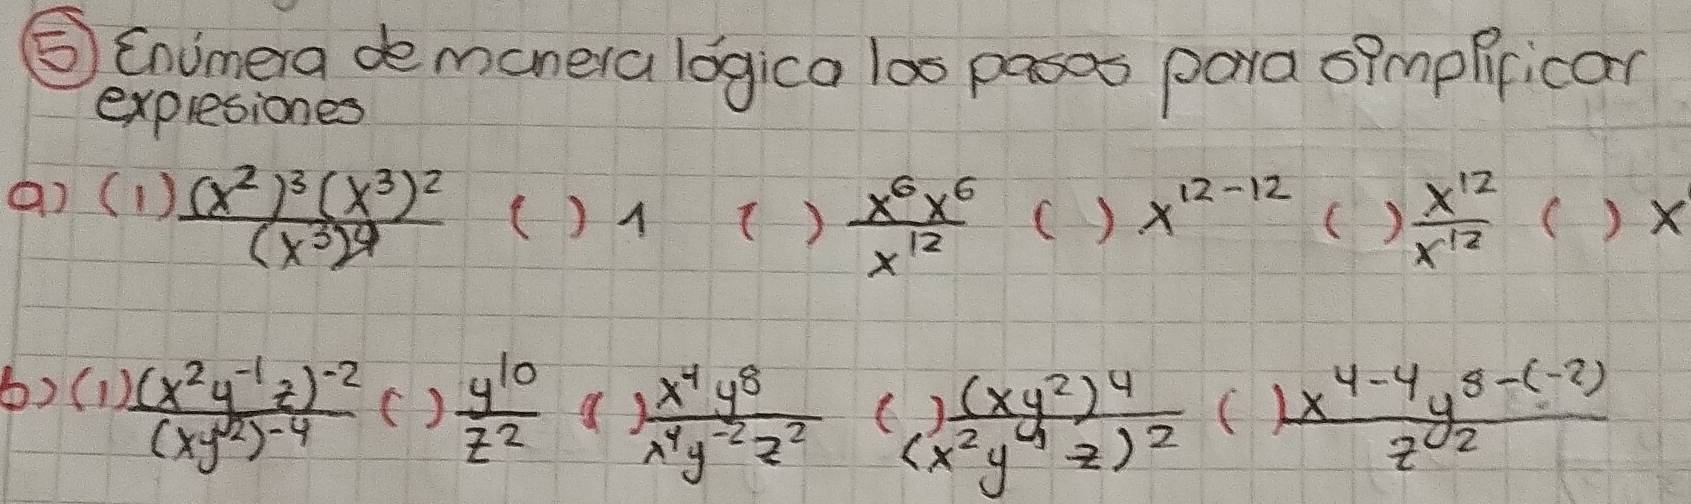 ⑤ Enúmera de manera lógica los pasos para simplificar
expresiones
a) (1) (x²)³(x³)²/(x³)⁴ ( ) 1 ( ) x⁶x⁶/x¹² ( ) x¹²⁻¹² ( ) x¹²/x¹² ( ) x
b) (1) (x²y⁻¹z)⁻²/(xy²)⁻⁴ ( ) y¹⁰/z² ( ) x⁴y⁸/x⁴y⁻²z² ( ) (xy²)⁴/(x²y⁻¹z)² ( ) x⁴⁻⁴y⁸⁻⁽⁻²⁾/z²